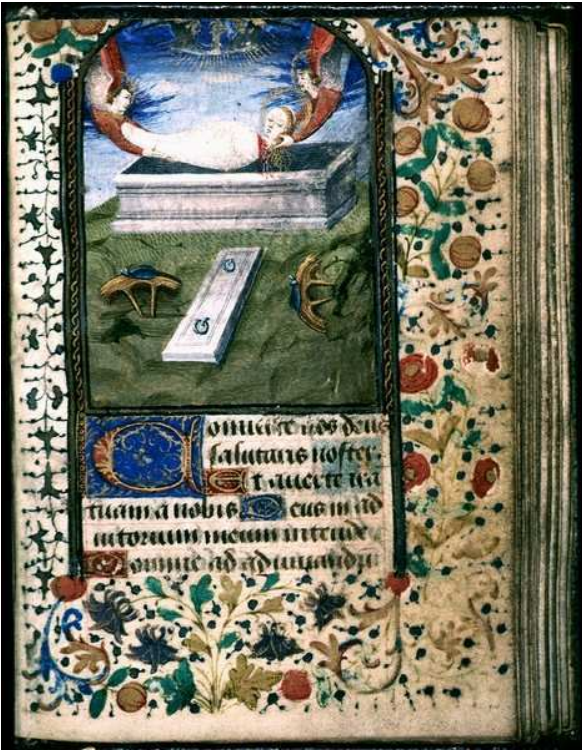 Conuerte nos deus
salutaris noster.
Et auerte ira
tuam a nobis Deus in ad
iutorium meum intende
Domine ad adiuuandu